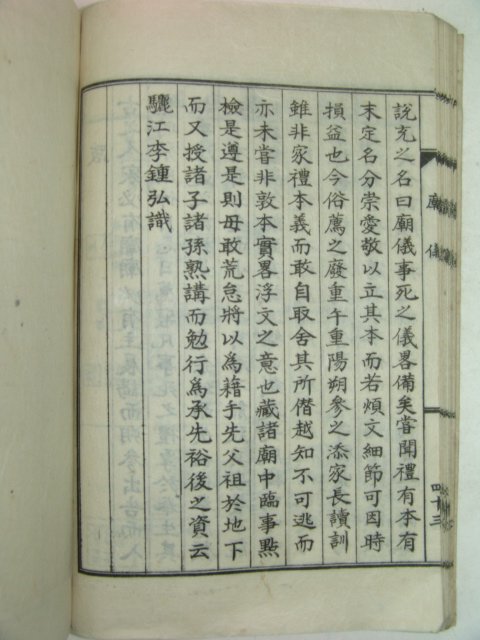 說充之名曰廟儀事死之儀畧備矣嘗聞禮有本有
末定名分崇愛敬以立其本而若煩文細節可因時
損益也今俗薦之廢重午重陽朔參之添家長讀訓
雖非家禮本義而敢自取舍其所僭越知不可逃而
亦未嘗非敦本實畧浮文之意也藏諸廟中臨事點
檢是遵是則毋敢荒怠將以為藉手先父祖於地下
而又授諸子諸孫熟講而勉行為承先裕後之資云
驪江李鍾弘識
廟儀
四十三